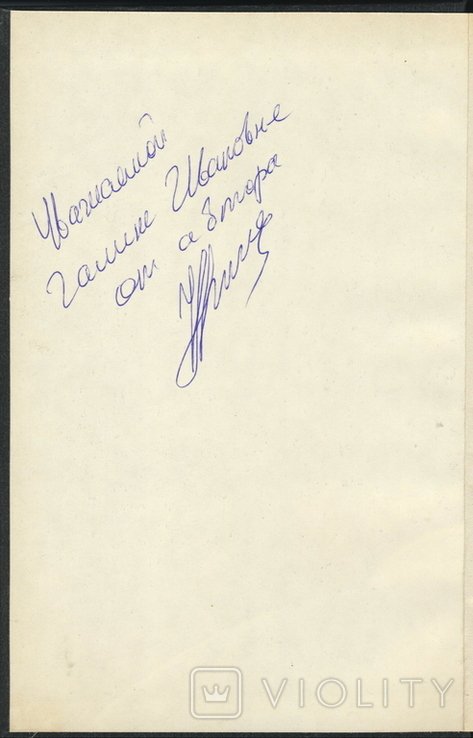 Уважаемой
Галине Ивановне
от автора
VIOLITY